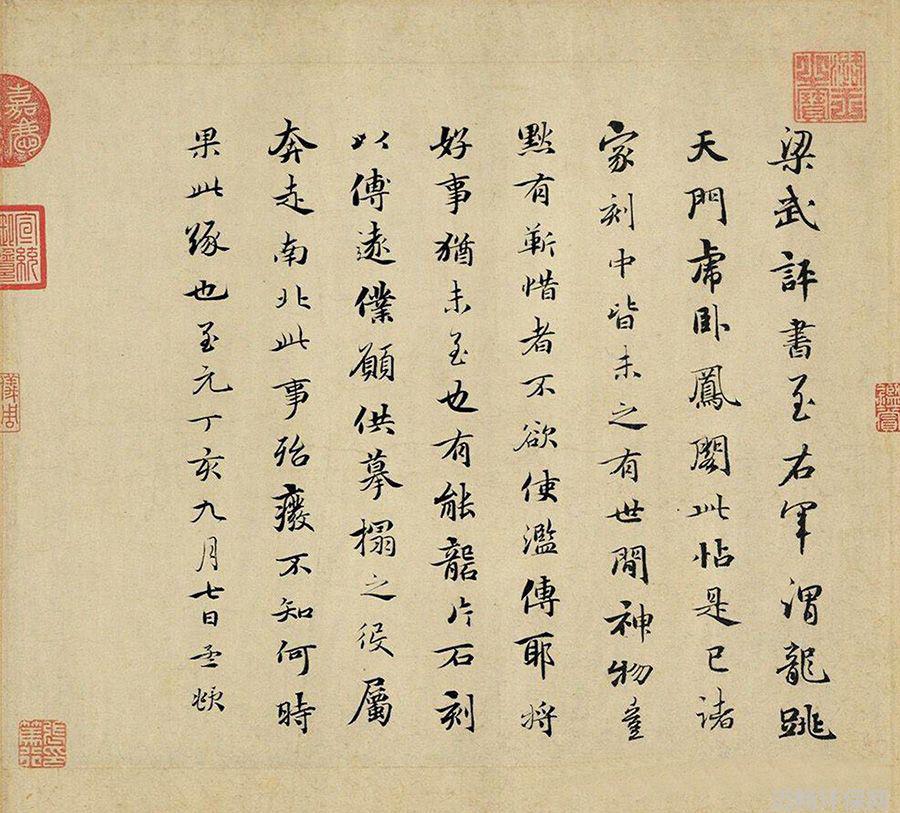 梁武評書至右軍謂龍跳
天門虎卧鳳閣此帖是已諸
家刻中皆未之有世間神物豈
黙有靳惜者不欲使濫傳耶將
好事猶未至也有能龍片石刻
以傳遠僕願供摹搨之役屬
奔走南北此事殆癈不知何時
果此緣也至元丁亥九月七日
嘉慶
鑑賞